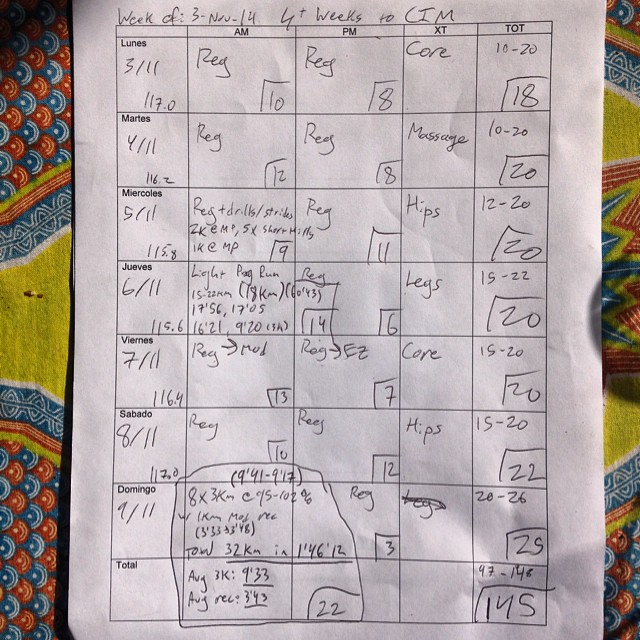 Week of: 3-Nov-14 4+ Weeks to CIM
AM PM XT TOT
Lunes
3/11
117.0
Reg
10
Reg
8
Core
10-20
18
Martes
4/11
116.2
Reg
12
Reg
8
Massage
10-20
20
Miercoles
5/11
115.8
Reg + drills/strides
2K @ MP, 5x short hills
1K @ MP
9
Reg
11
Hips
12-20
20
Jueves
6/11
115.6
Light Prog Run
15-22km (18km) (60'43)
17'56, 17'05
16'21, 9'20 (3k)
14
Reg
6
Legs
15-22
20
Viernes
7/11
116.4
Reg → Mod
13
Reg → EZ
7
Core
15-20
20
Sabado
8/11
117.0
Reg
10
Reg
12
Hips
15-20
22
Domingo
9/11
(9'41-9'17)
8x3Km @ 95-102%
w/ 1Km Mod rec
(3'33-3'48)
Total 32Km in 1'46'12
Avg 3K: 9'33
Avg rec: 3'43
22
Reg
3
Legs
20-26
25
Total
97-148
145